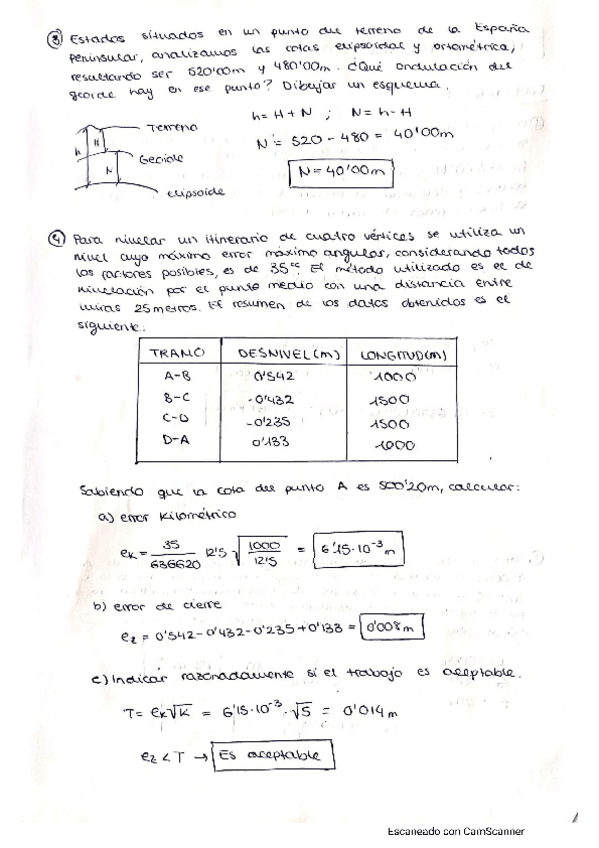 ③ Estados situados en un punto del terreno de la España
peninsular, analizamos las cotas elipsoidal y ortométrica,
resultando ser 520'00m y 480'00m. ¿Qué ondulación del
geoide hay en ese punto? Dibujar un esquema.
h = H + N ; N = h - H
Terreno
N = 520 - 480 = 40'00m
H
h
Geoide
N
N = 40'00m
elipsoide
④ Para nivelar un itinerario de cuatro vértices se utiliza un
nivel cuyo máximo error máximo angular, considerando todos
los factores posibles, es de 35cc. El método utilizado es el de
nivelación por el punto medio con una distancia entre
miras 25 metros. El resumen de los datos obtenidos es el
siguiente:
TRAMO DESNIVEL (m) LONGITUD (m)
A-B 0'542 1000
B-C -0'432 1500
C-D -0'235 1500
D-A 0'133 1000
Sabiendo que la cota del punto A es 500'20m, calcular:
a) error kilométrico
eK = 35/636620 12'5 √(1000/12'5) = 6'15·10⁻³ m
b) error de cierre
e2 = 0'542-0'432-0'235+0'133 = 0'008m
c) Indicar razonadamente si el trabajo es aceptable.
T = eK√K = 6'15·10⁻³·√5 = 0'014 m
e2 < T → Es aceptable
Escaneado con CamScanner